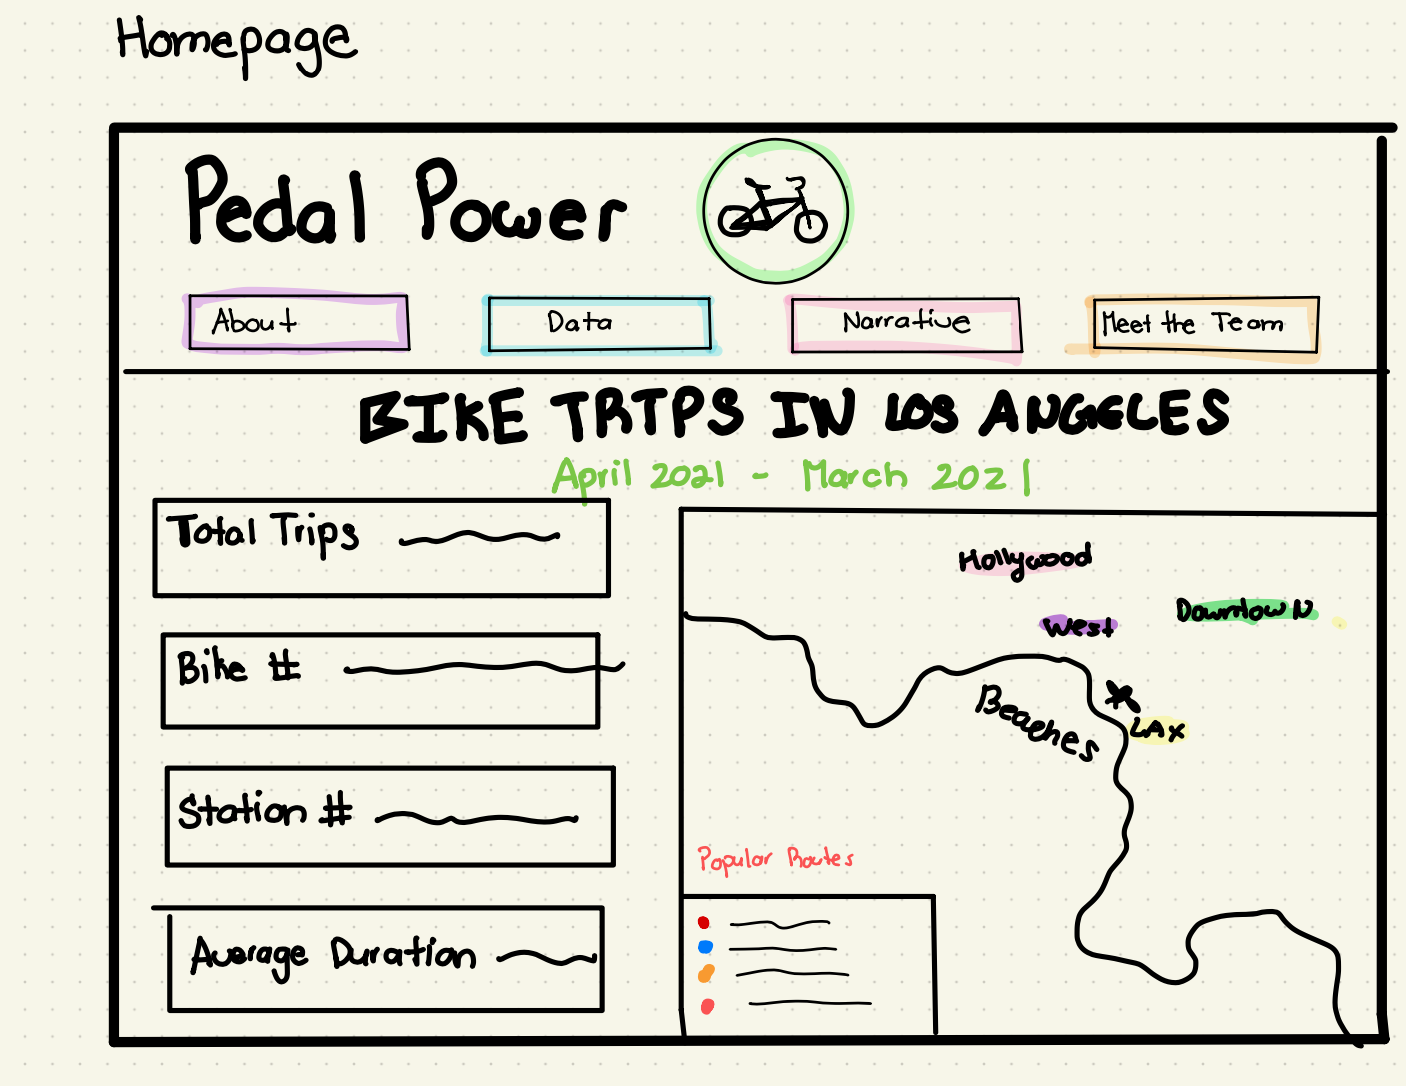 Homepage
Pedal Power
About
Data
Narrative
Meet the Team
BIKE TRIPS IN LOS ANGELES
April 2021 - March 2021
Total Trips
Bike #
Station #
Average Duration
Hollywood
Downtown
West
Beaches
LAX
Popular Routes